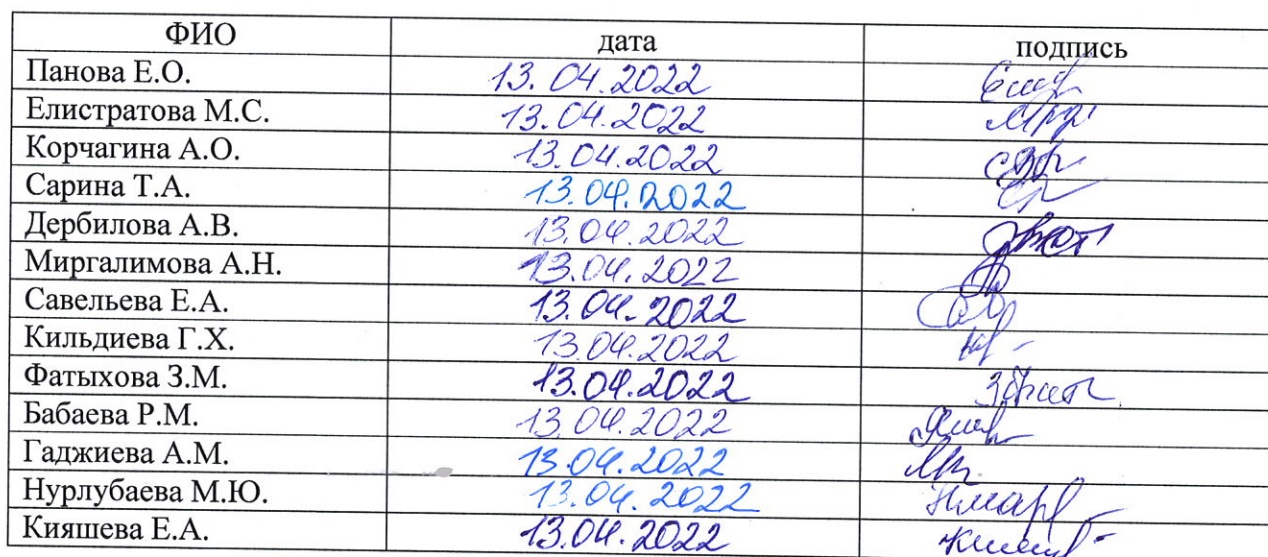 ФИО дата подпись
Панова Е.О. 13.04.2022
Елистратова М.С. 13.04.2022
Корчагина А.О. 13.04.2022
Сарина Т.А. 13.04.2022
Дербилова А.В. 13.04.2022
Миргалимова А.Н. 13.04.2022
Савельева Е.А. 13.04.2022
Кильдиева Г.Х. 13.04.2022
Фатыхова З.М. 13.04.2022
Бабаева Р.М. 13.04.2022
Гаджиева А.М. 13.04.2022
Нурлубаева М.Ю. 13.04.2022
Кияшева Е.А. 13.04.2022